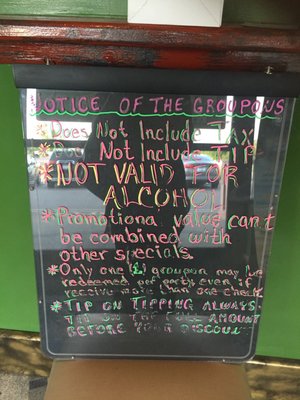 NOTICE OF THE GROUPONS
* Does Not Include TAX
* Does Not Include TIP
* NOT VALID FOR
ALCOHOL
* Promotional value can't
be combined with
other specials.
* Only one (1) groupon may be
redeemed per party even if
receive more than one check
* TIP ON TIPPING ALWAYS
TIP ON THE FULL AMOUNT
BEFORE YOUR DISCOUNT